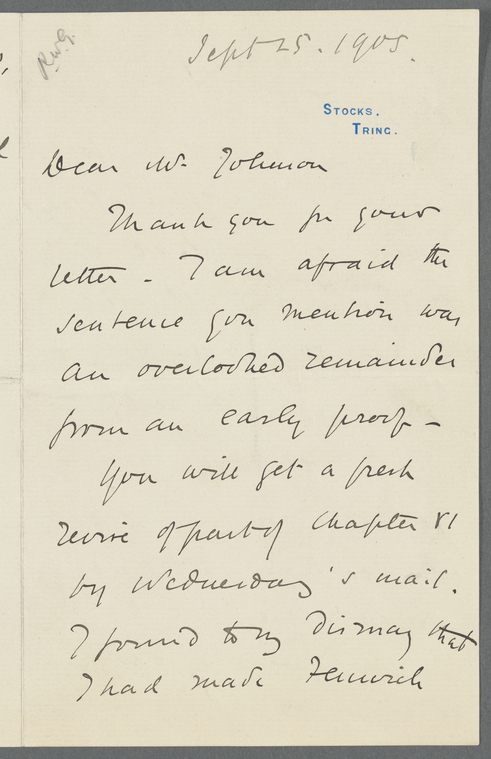 R.W.G.
Sept 25. 1905.
STOCKS.
TRING.
Dear Mr. Johnson
Thank you for your
letter - I am afraid the
sentence you mention was
an overlooked remainder
from an early proof -
You will get a fresh
revise of part of Chapter VI
by Wednesday's mail.
I found to my dismay that
I had made Fenwick